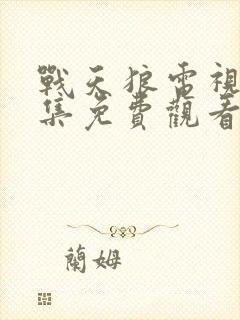 戰天狼雷視
集免費觀看
蘭姆